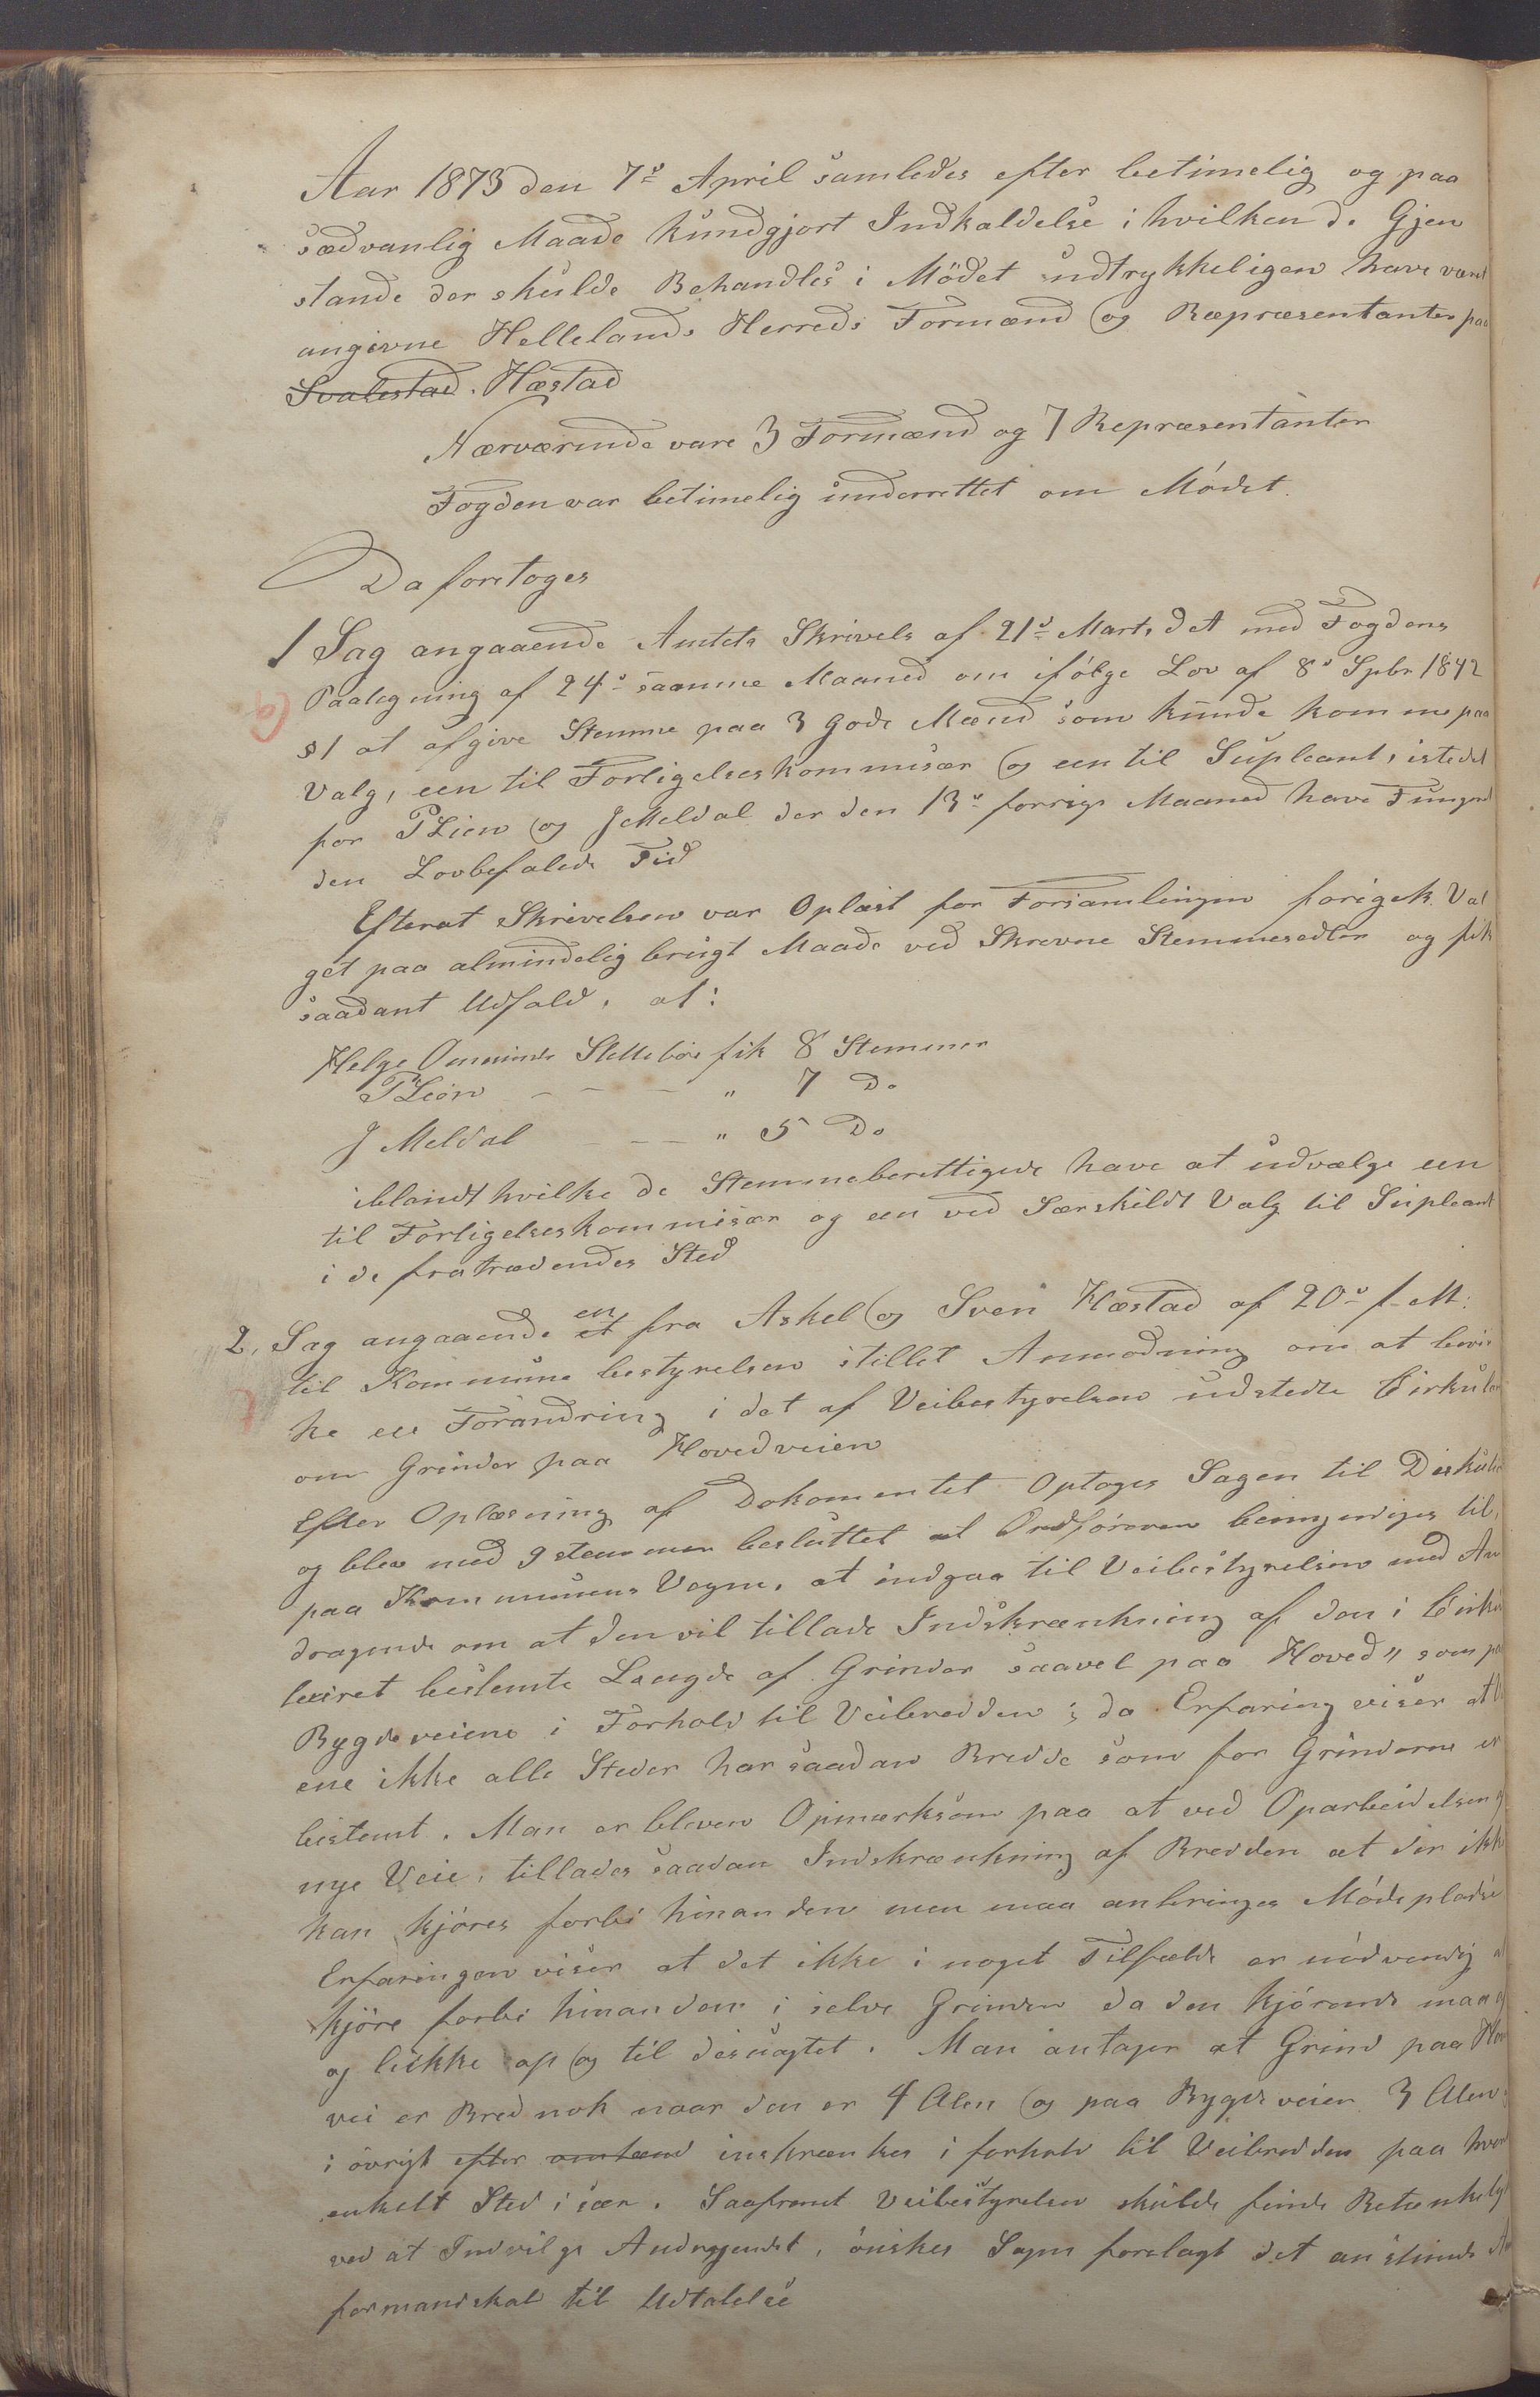 Aar 1873 den 7de April samledes efter betimelig og paa
sædvanlig Maade kundgjort Indkaldelse i hvilken de Gjen
stande der skulde Behandles i Mödet udtrykkeligen have været
angivne Hellelands Herreds Formænd og Repræsentanter paa
Svalestad. Hæstad
Nærværende vare 3 Formænd og 7 Repræsentanter
Fogden var betimelig underrettet om Mödet.
Da foretoges
1 Sag angaaende Amtets Skrivels af 21de Marts d A med Fogdens
Paategning af 24de samme Maaned om ifölge Lov af 8de Spbr 1842
§1 at afgive Stemme paa 3 gode Mænd som kunde komme paa
Valg, een til Forligelseskommisær og een til Supleant, istedet
for P Lien og J Meldal der den 13de forrige Maaned have Fungeret
den Lovbefalede Tid
Efterat Skrivelsen var Oplæst for Forsamlingen foregik Val
get paa almindelig brugt Maade ved Skrevne Stemmesedler og fik
saadant Udfald, at:
Helge Omund Slettebö fik 8 Stemmer
P Lien - - - " 7 Do
J Meldal - - - " 5 Do
iblandt hvilke de Stemmeberettigede have at udvælge een
til Forligelseskommisær og een ved Særskildt Valg til Supleant
i de fratrædendes Sted
2, Sag angaaende en fra Askel og Sven Hæstad af 20de f. M:
til Kommunebestyrelsen stillet Anmodning om at bevir
ke en Forandring i det af Veibestyrelsen udstedte Cirkulær
om Grinder paa Hovedveien
Efter Oplæsning af Dokomentet Optoges Sagen til Diskution
og blev med 9 stemmer besluttet at Ordföreren bemyndiges til,
paa Kommunens Vegne, at indgaa til Veibestyrelsen med An
dragende om at den vil tillade Indskrænkning af den i Cirku
læret bestemte Længde af Grinder saavel paa Hoved" som paa
Bygdeveiene i Forhold til Veibredden; da Erfaring viser at Vei
ene ikke alle Steder har saadan Bredde som for Grinderne er
bestemt. Man er bleven Opmærksom paa at ved Oparbeidelsen af
nye Veie, tillades saadan Indskrænkning af Bredden at der ikke
kan kjöres forbi hinanden men maa anbringes Mödepladse
Erfaringen viser at det ikke i noget Tilfælde er nödvendig at
kjöre forbi hinanden i selve Grinden da den kjörende maa af
og lukke op og til desuagtet. Man antager at Grind paa Hoved
vei er Bred nok naar den er 4 Alen og paa Bygdeveien 3 Alen;
i övrigt efter omtænd inskrænkes i forhold til Veibredden paa hvert
enkelt Sted i sær. Saafremt Veibestyrelsen skulde finde Betænkelig
ved at Indvilge Andragendet, önskes Sagen forelagt det anstünde Amts
formandskab til Udtalelse